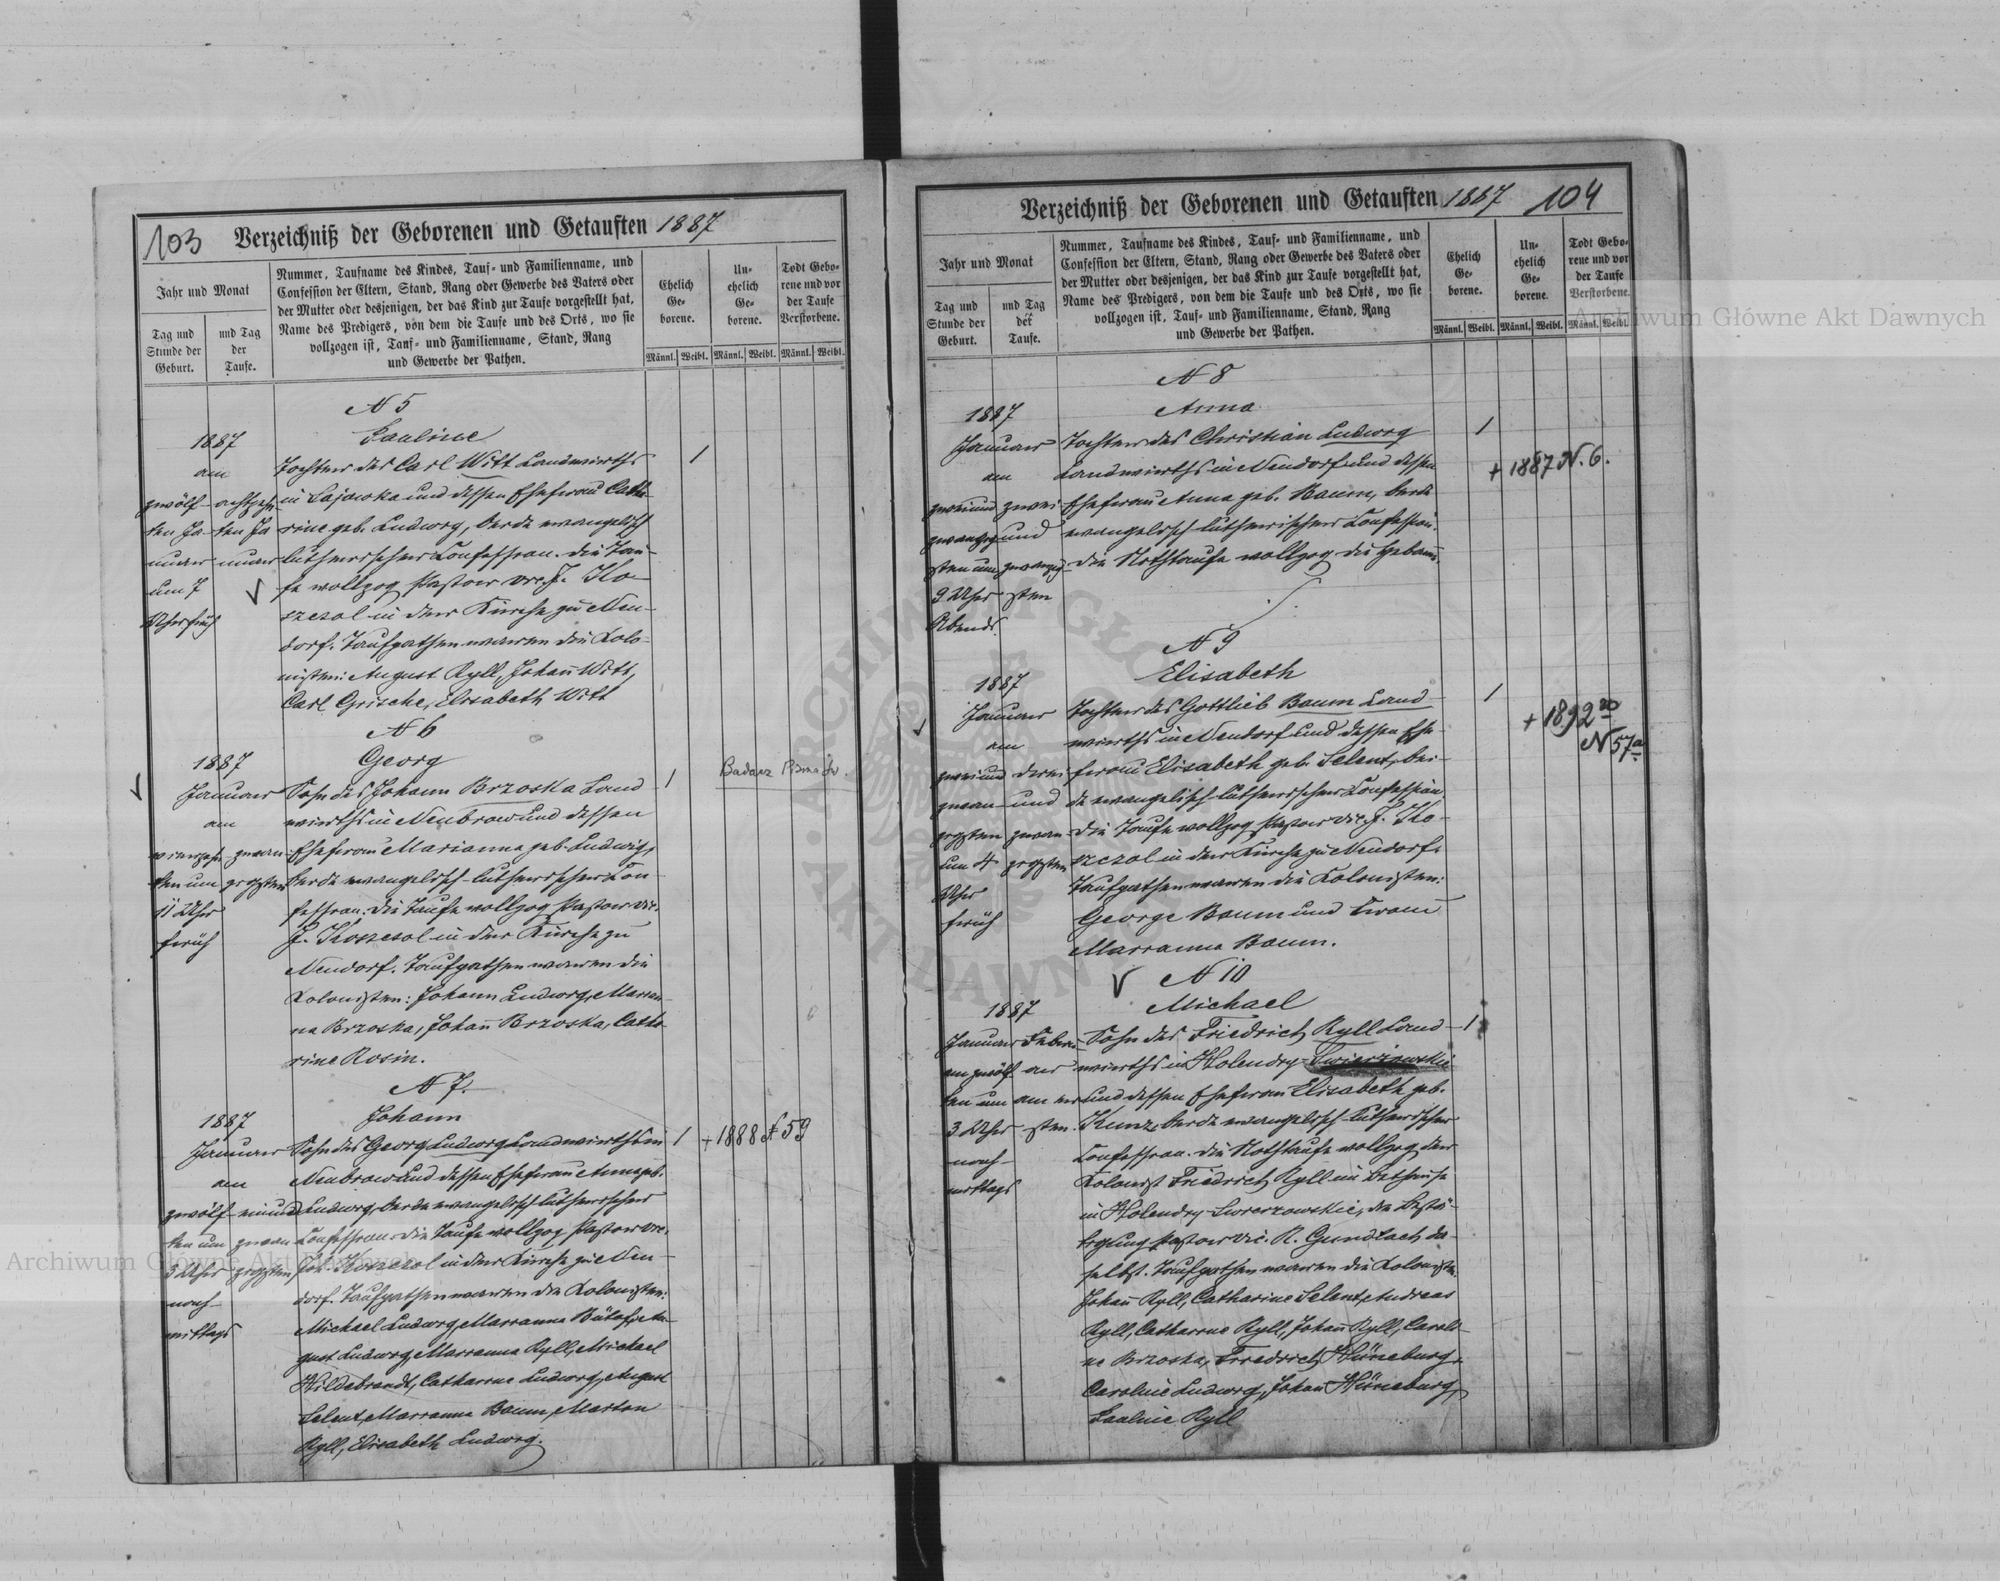 103 Verzeichniß der Geborenen und Getauften 1887
Jahr und Monat
Tag und Stunde der Geburt.
und Tag der Taufe.
Nummer, Taufname des Kindes, Tauf- und Familienname, und
Confession der Eltern, Stand, Rang oder Gewerbe des Vaters oder
der Mutter oder desjenigen, der das Kind zur Taufe vorgestellt hat,
Name des Predigers, von dem die Taufe und des Orts, wo sie
vollzogen ist, Tauf- und Familienname, Stand, Rang
und Gewerbe der Pathen.
Ehelich Ge- borene.
Un- ehelich Ge- borene.
Todt Gebo- rene und vor der Taufe Verstorbene.
Männl. Weibl. Männl. Weibl. Männl. Weibl.
N 5
Pauline
1887
am
zwölf-
ten Ja-
nuar
um 7
Uhr früh
achtzehn-
ten Ja
nuar
Tochter des Carl Witt Landwirths
in Lajowka und dessen Ehefrau Catha
rine geb. Ludwig, beide evangelisch
lutherischer Confession. Die Tau-
fe vollzog Pastor vic. J. Ko-
szczol in der Kirche zu Neu-
dorf. Taufpathen waren die Kolo-
nisten: August Ryll, Johañ Witt,
Carl Grische, Elisabeth Witt
1
N 6
Georg
1887
Januar
am
vierzehn
ten um
11 Uhr
früh
zwan-
zigsten
Sohn des Johann Brzoska Land
wirths in Neubrow und dessen
Ehefrau Marianna geb. Ludwig,
beide evangelisch-lutherischer Con
fession. Die Taufe vollzog Pastor vic.
J. Koszczol in der Kirche zu
Neudorf. Taufpathen waren die
Kolonisten: Johann Ludwig, Marian-
na Brzoska, Johañ Brzoska, Catha
rine Rosin.
1
N 7.
Johann
1887
Januar
am
zwölf-
ten um
3 Uhr
nach-
mittags
einund
zwan
zigsten
Sohn des Georg Ludwig Landwirths in
Neubrow und dessen Ehefrau Anna geb.
Ludwig, beide evangelisch lutherischer
Confession. Die Taufe vollzog Pastor vic.
Joh. Koszczol in der Kirche zu Neu-
dorf. Taufpathen waren die Kolonisten:
Michael Ludwig, Marianna Bütof, Au-
gust Ludwig, Marianna Ryll, Michael
Hildebrandt, Catharine Ludwig, August
Selent, Marianna Baum, Martin
Ryll, Elisabeth Ludwig.
1 + 1888 N 59
Verzeichniß der Geborenen und Getauften 1887 104
Jahr und Monat
Tag und Stunde der Geburt.
und Tag der Taufe.
Nummer, Taufname des Kindes, Tauf- und Familienname, und
Confession der Eltern, Stand, Rang oder Gewerbe des Vaters oder
der Mutter oder desjenigen, der das Kind zur Taufe vorgestellt hat,
Name des Predigers, von dem die Taufe und des Orts, wo sie
vollzogen ist, Tauf- und Familienname, Stand, Rang
und Gewerbe der Pathen.
Ehelich Ge- borene.
Un- ehelich Ge- borene.
Todt Gebo- rene und vor der Taufe Verstorbene.
Männl. Weibl. Männl. Weibl. Männl. Weibl.
N 8
Anna
1887
Januar
am
zweiund
zwanzig
sten um
9 Uhr
Abends.
zwei
und
zwanzig
sten
Tochter des Christian Ludwig
Landwirths in Neudorf und dessen
Ehefrau Anna geb. Baum, beide
evangelisch-lutherischer Confession.
Die Nothtaufe vollzog die Hebam̃e
1
+ 1887 N. 6.
N 9
Elisabeth
1887
Januar
am
zweiund
zwan-
zigsten
um 4
Uhr
früh
drei
und
zwan-
zigsten
Tochter des Gottlieb Baum Land-
wirths in Neudorf und dessen Ehe-
frau Elisabeth geb. Selent, bei-
de evangelisch-lutherischer Confession.
Die Taufe vollzog Pastor vic. J. Ko-
szczol in der Kirche zu Neudorf.
Taufpathen waren die Kolonisten:
George Baum und Frau
Marianna Baum.
1
+ 1892
N 57a
N 10
Michael
1887
Januar
am zwölf
ten um
3 Uhr
nach-
mittags
Sohn des Friedrich Ryll Land-
wirths in Holendry-Swierzowskie
und dessen Ehefrau Elisabeth geb.
Kunz, beide evangelisch-lutherischer
Confession. Die Nothtaufe vollzog der
Kolonist Friedrich Ryll im Bethause
in Holendry-Swierzowskie, die Bestä-
tigung Pastor vic. R. Gundlach da-
selbst. Taufpathen waren die Kolonisten:
Johañ Ryll, Catharine Selent, Andreas
Ryll, Catharine Ryll, Johañ Ryll, Caroli-
ne Brzoska, Friedrich Hüneburg,
Caroline Ludwig, Johañ Hüneburg,
Pauline Ryll
1
Archiwum Główne Akt Dawnych
Archiwum Główne Akt Dawnych